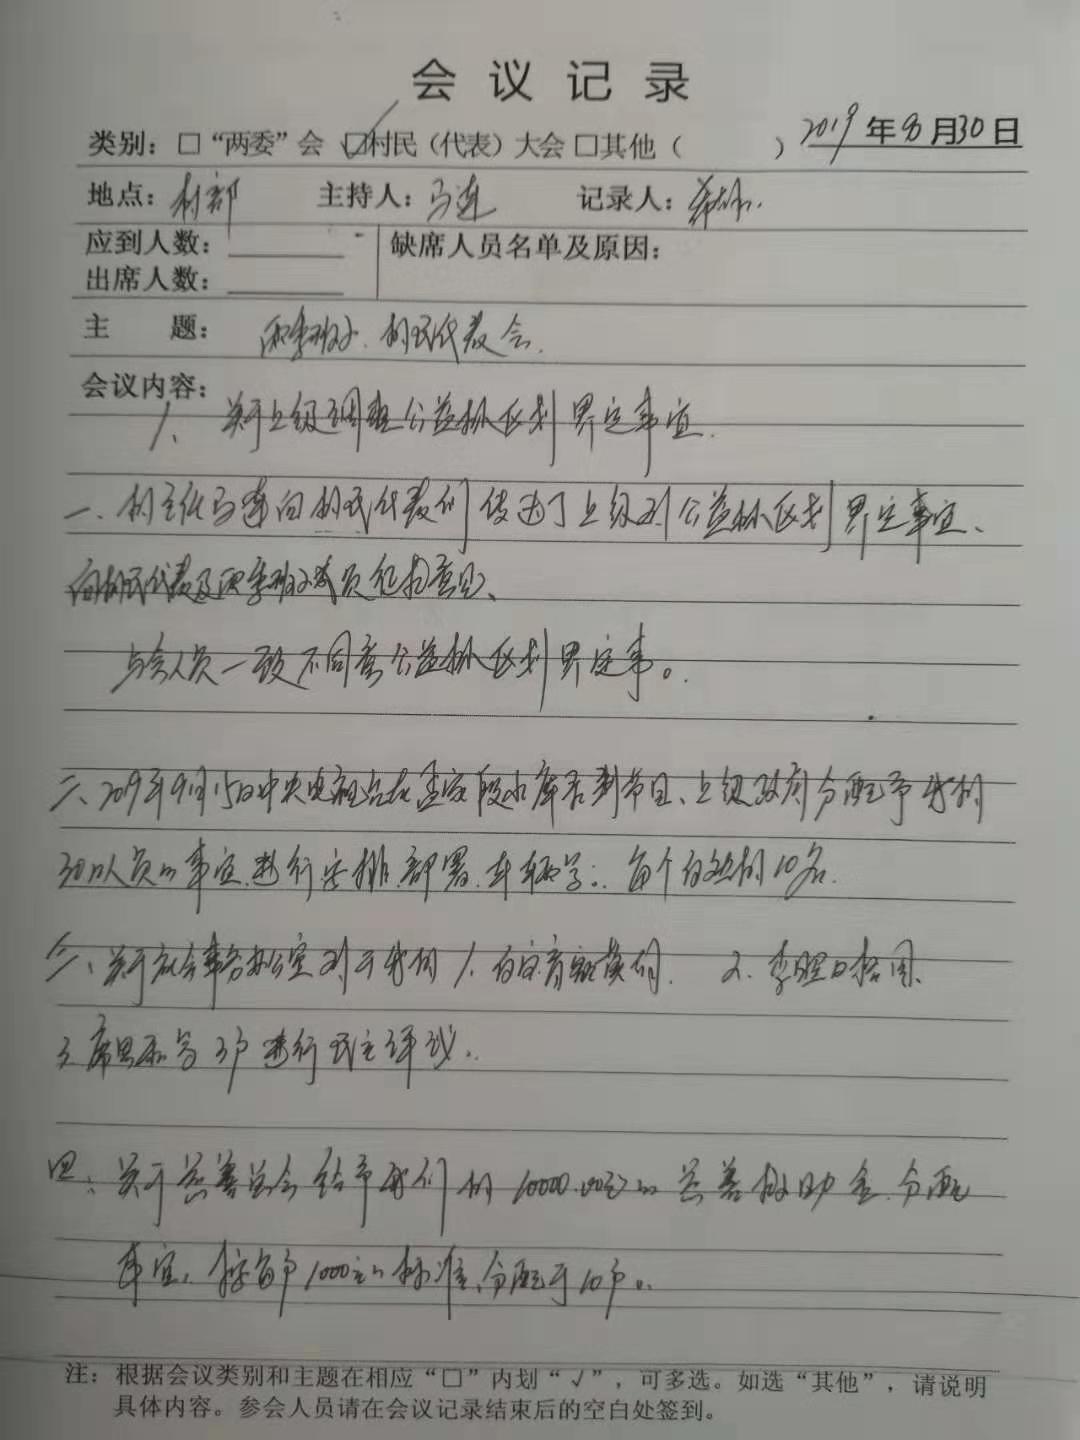 会议记录
类别：□“两委”会 ☑村民（代表）大会 □其他（ ） 2019年8月30日
地点：村部 主持人：马连 记录人：
应到人数： 缺席人员名单及原因：
出席人数：
主 题： 两委班子、村民代表会.
会议内容：
1、关于上级调整公益林区划界定事宜.
一、村主任马连向村民代表们传达了上级对公益林区划界定事宜、
向村民代表及两委班子成员征求意见、
与会人员一致不同意公益林区划界定事。
二、2019年9月15日中央电视台在孟家段水库录制节目、上级政府分配予我村
30人员的事宜，进行安排、部署、车辆等。每个自然村10名.
三、关于社会事务办公室对于我村 1、 2、
3、 3户进行民主评议。
四、关于慈善总会给予我们村10000.00元的慈善救助金，分配
事宜，按每户1000元的标准，分配于10户。
注：根据会议类别和主题在相应“□”内划“√”，可多选。如选“其他”，请说明
具体内容。参会人员请在会议记录结束后的空白处签到。